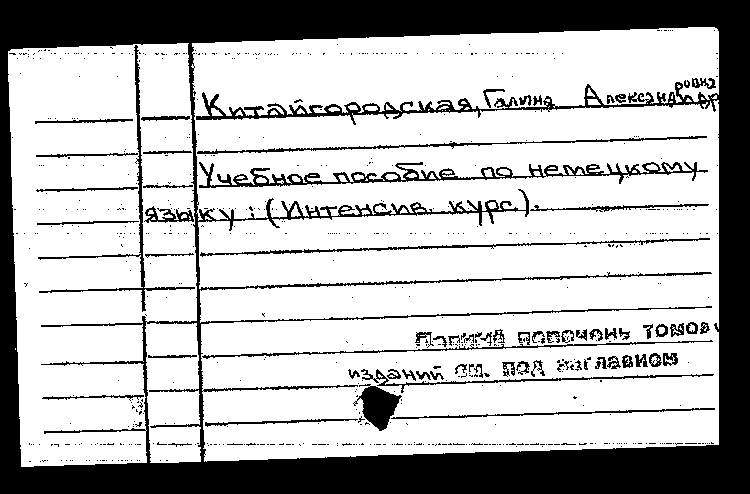 Китайгородская, Галина Александровна
Учебное пособие по немецкому
языку : (Интенсив. курс.).
Полный перечень томов и
изданий см. под заглавием